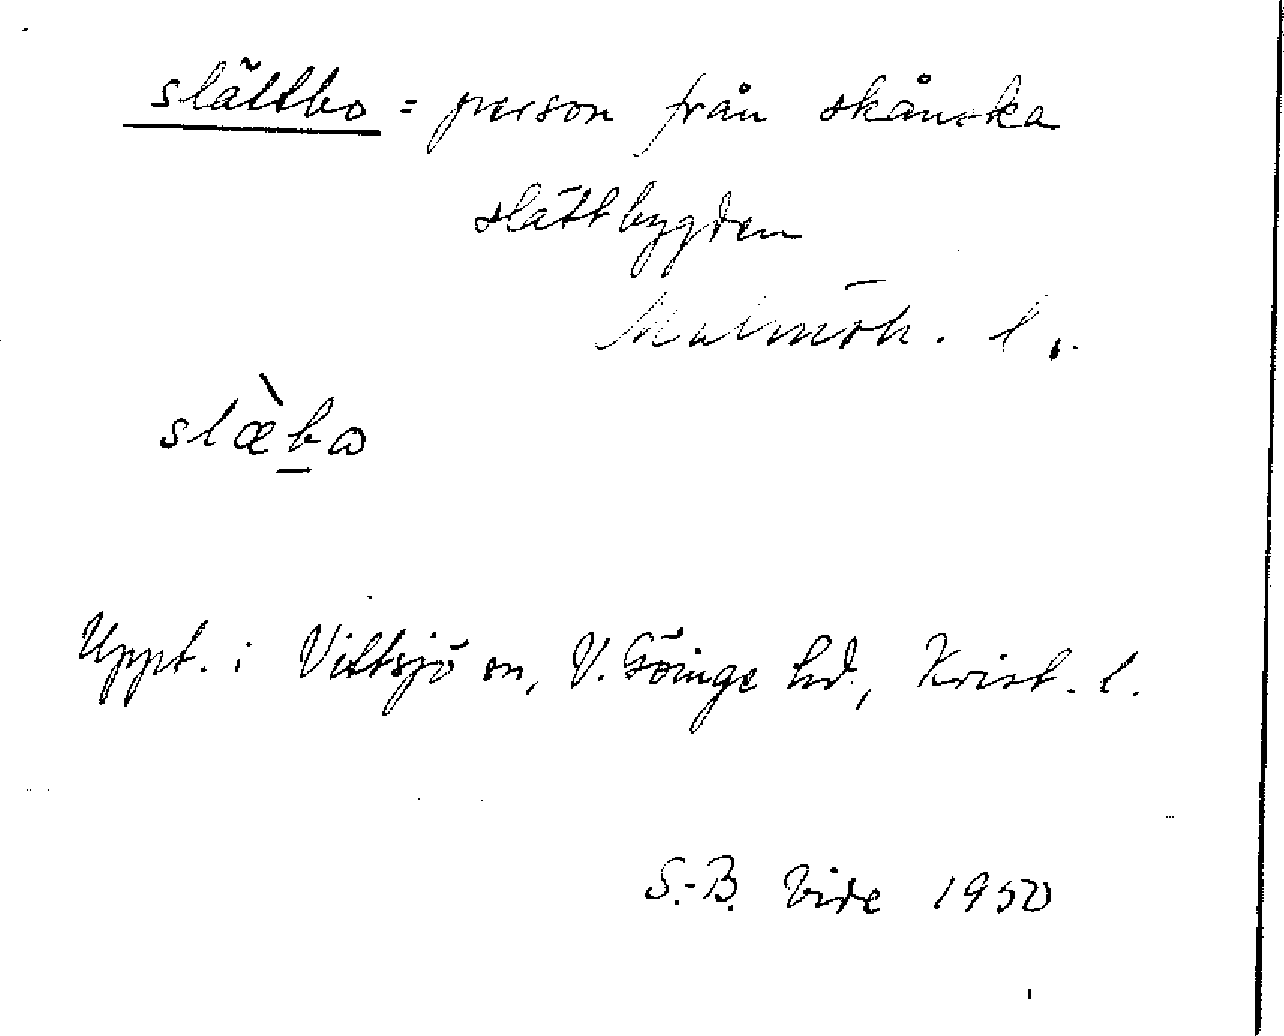 slättbo = person från skånska
slättbygden
Malmöh. l.
slæ̀b̲o
Uppt. i Vittsjö sn, V. Göinge hd., Krist. l.
S.-B. Vide 1950